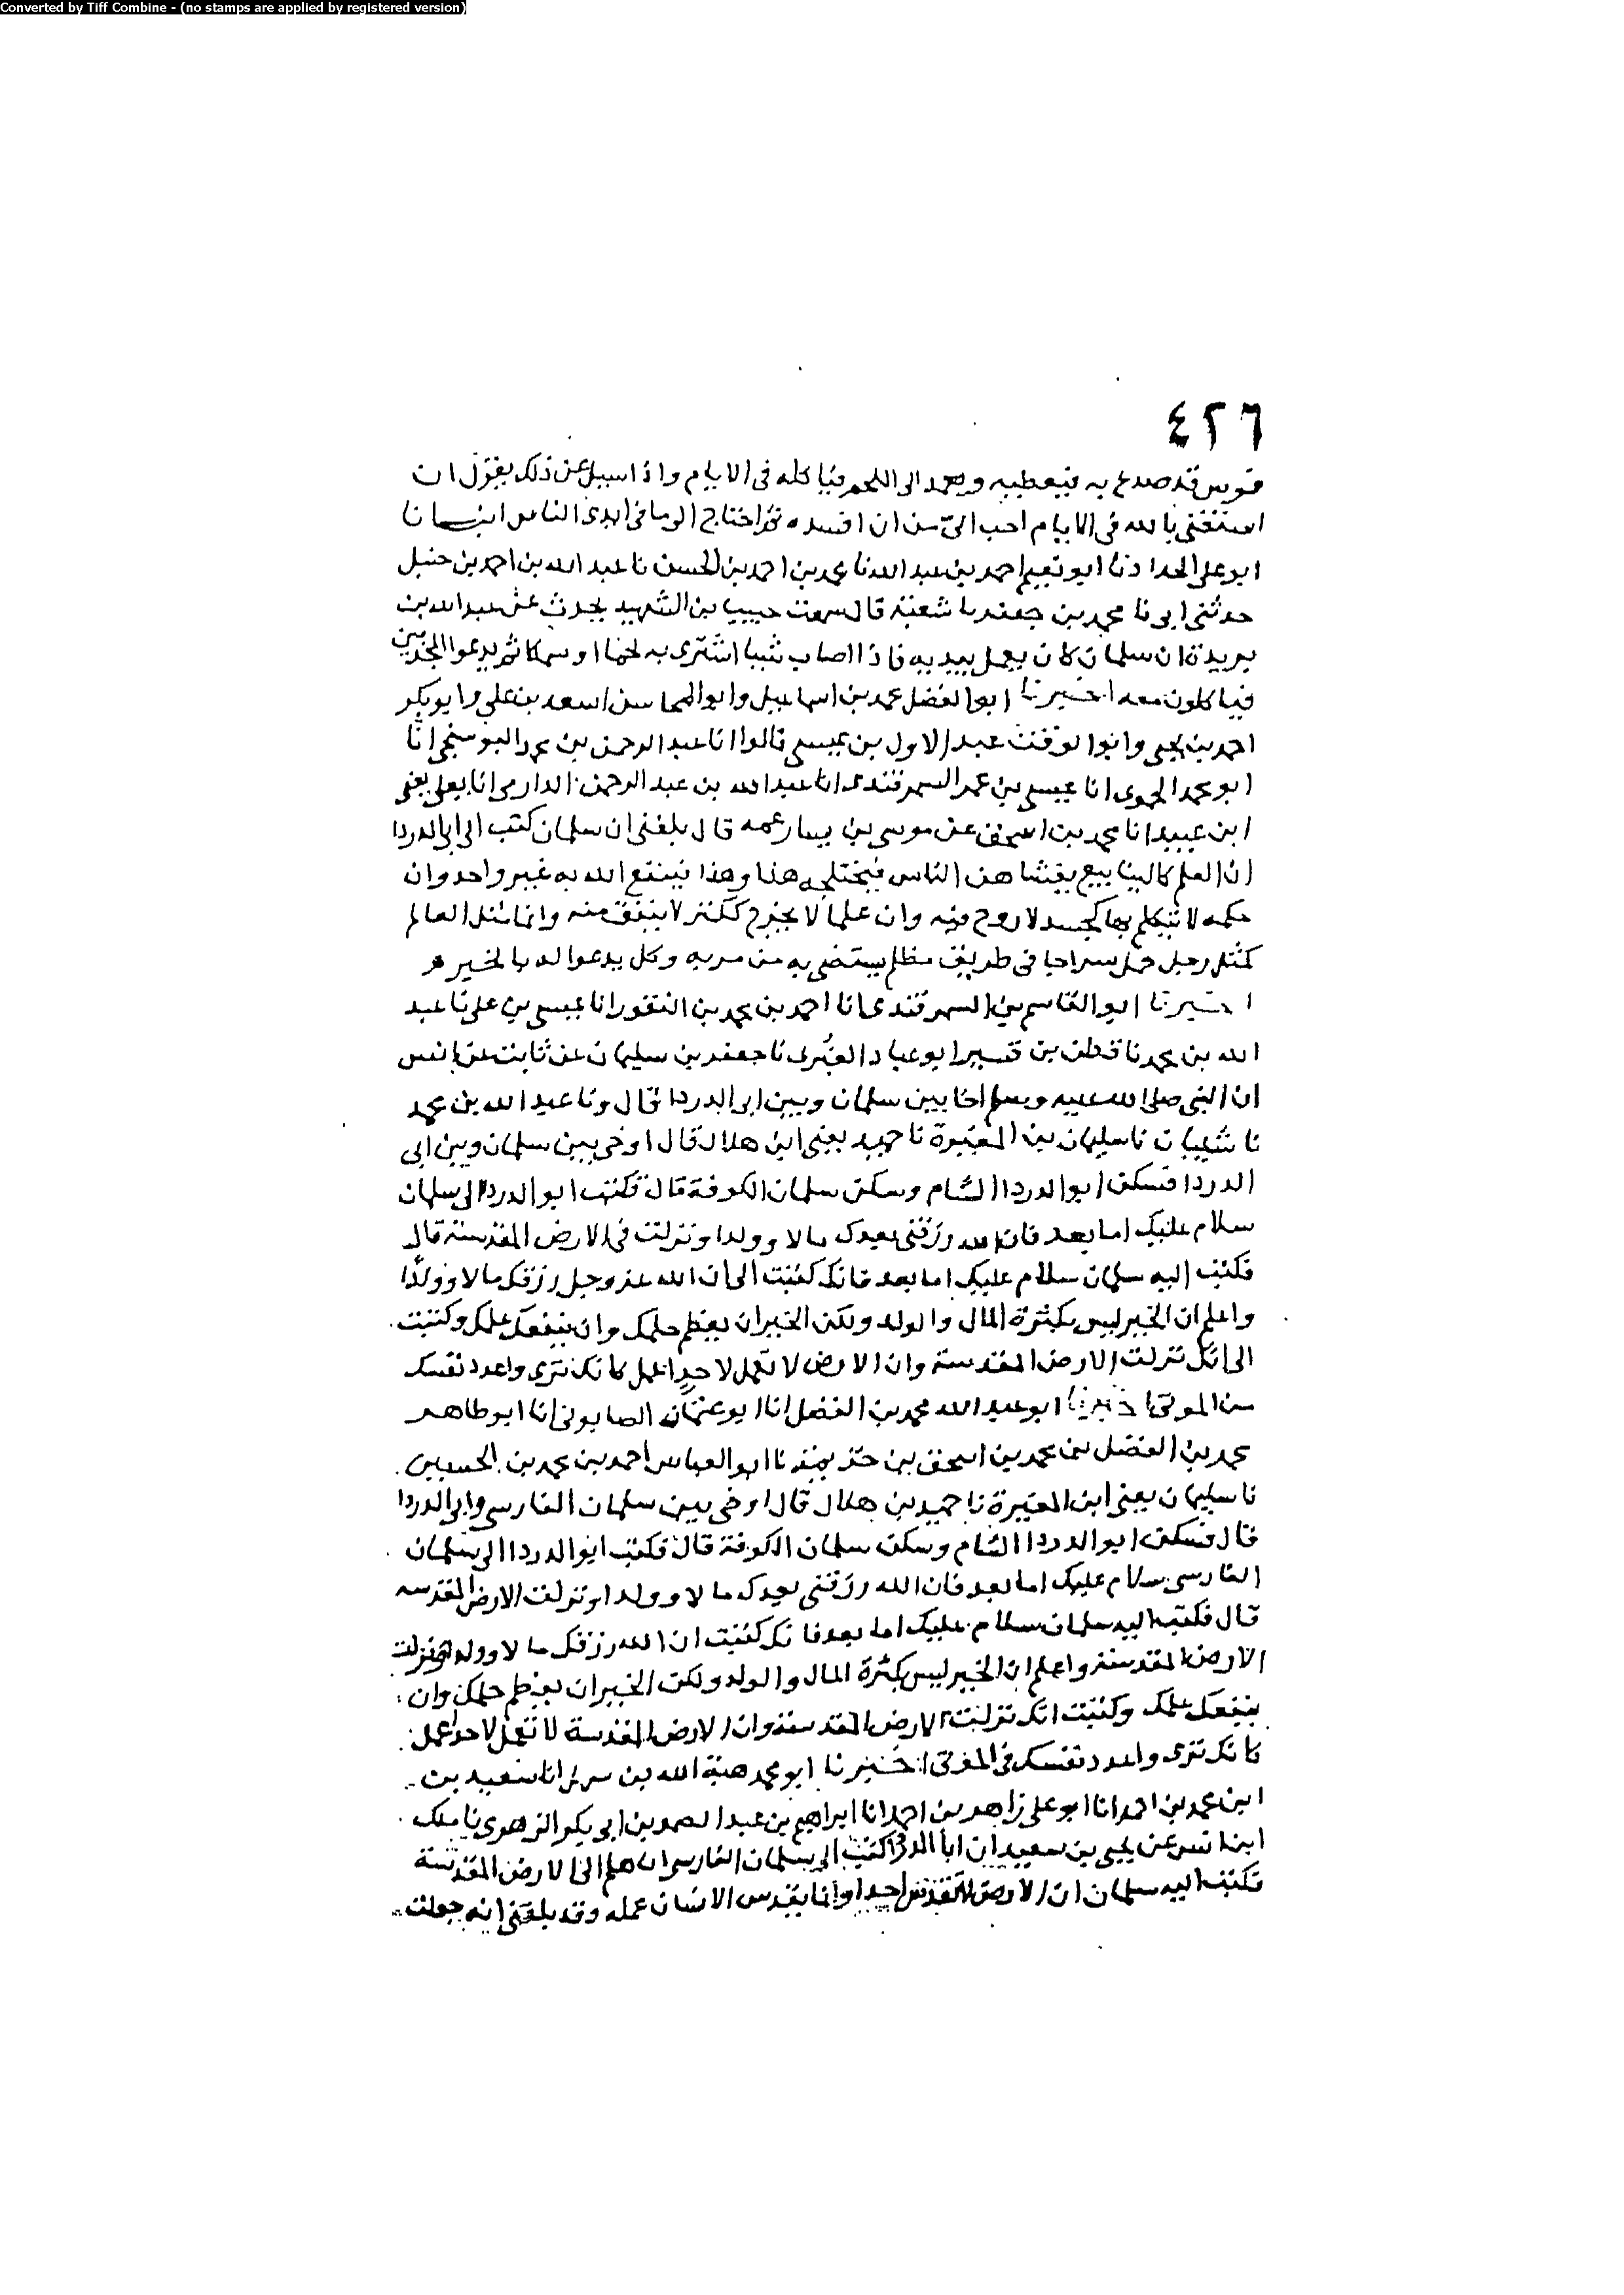 Converted by Tiff Combine - (no stamps are applied by registered version)
٤٢٦
قوس قد صدع به فيعطيه ويعمد الى اللحم فياكله فى الايام واذا سيل عن ذلك يقول ان
استغنى بالله فى الايام احب الىّ من ان افسده ثم احتاج الى ما فى ايدى الناس انبانا
ابو على الحداد نا ابو نعيم احمد بن عبد الله نا محمد بن احمد بن الحسن نا عبد الله بن احمد بن حنبل
حدثنى ابى نا محمد بن جعفر نا شعبة قال سمعت حبيب بن الشهيد يحدث عن عبد الله بن
بريدة ان سلمان كان يعمل بيديه فاذا اصاب شيا اشترى به لحما او سمكا ثم يدعوا المجذمين
فياكلون معه اخبرنا ابو الفضل محمد بن اسماعيل وابو المحاسن اسعد بن على وابو بكر
احمد بن يحيى وابو الوقت عبد الاول بن عيسى قالوا انا عبد الرحمن بن محمد البوسنجى انا
ابو محمد الحموى انا عيسى بن عمر السمرقندى انا عبد الله بن عبد الرحمن الدارمى انا يعلى يعنى
ابن عبيد انا محمد بن اسحق عن موسى بن يسار عمه قال بلغنى ان سلمان كتب الى ابى الدردا
ان العلم كالينابيع يغشاهن الناس فيختلجه هذا وهذا فينفع الله به غير واحد وان
حكمه لا تيكلم بها كجسد لا روح فيه وان علما لا يخرج ككنز لا ينفق منه وانما مثل العالم
كمثل رجل حمل سراجا فى طريق مظلم يستضى به من مر به وكل يدعوا له بالخير
اخبرنا ابو القاسم بن السمرقندى انا احمد بن محمد بن النقور انا عيسى بن على نا عبد
الله بن محمد نا قطن بن نسير ابو عباد الغبرى نا جعفر بن سليمان عن ثابت عن انس
ان النبى صلى الله عليه وسلم اخا بين سلمان وبين ابى الدردا قال ونا عبد الله بن محمد
نا شيبان نا سليمان بن المغيرة نا حميد يعنى ابن هلال قال اوخى بين سلمان وبين ابى
الدردا فسكن ابو الدردا الشام وسكن سلمان الكوفة قال فكتب ابو الدردا الى سلمان
سلام عليك اما بعد فان الله رزقنى بعدك مالا وولدا ونزلت فى الارض المقدسة قال
فكتب اليه سلمان سلام عليك اما بعد فانك كتبت الى ان الله عز وجل رزقك مالا وولدًا
واعلم ان الخير ليس بكثرة المال والولد ولكن الخير ان يعظم حلمك وان ينفعك علمك وكتبت
الى انك نزلت الارض المقدسة وان الارض لا تعمل لاحدٍ اعمل كانك ترى واعدد نفسك
من الموتى اخبرنا ابو عبد الله محمد بن الفضل انا ابو عثمان الصابونى انا ابو طاهر
محمد بن الفضل بن محمد بن اسحق بن خزيمة نا ابو العباس احمد بن محمد بن الحسين
نا سليمان يعنى ابن المغيرة نا حميد بن هلال قال اوخى بين سلمان الفارسى وابى الدردا
قال فسكن ابو الدردا الشام وسكن سلمان الكوفة قال فكتب ابو الدردا الى سلمان
الفارسى سلام عليك اما بعد فان الله رزقنى بعدك مالا وولدا ونزلت الارض المقدسه
قال فكتب اليه سلمان سلام عليك اما بعد فانك كتبت ان الله رزقك مالا وولدا ونزلت
الارض المقدسة واعلم ان الخير ليس بكثرة المال والولد ولكن الخير ان يعظم حلمك وان
ينفعك علمك وكتبت انك نزلت الارض المقدسة وان الارض المقدسة لا تعمل لاحد اعمل
كانك ترى واعدد نفسك فى الموتى اخبرنا ابو محمد هبة الله بن سهل انا سعيد بن
ابن محمد بن احمد انا ابو على زاهد بن احمد انا ابراهيم بن عبد الصمد بن ابى بكر الزهرى نا ملك
ابن انس عن يحيى بن سعيد ان ابا الدردا كتب الى سلمان الفارسى ان هلم الى الارض المقدسة
فكتب اليه سلمان ان الارض لا تقدس احدا وانما يقدس الانسان عمله وقد بلغنى انه جعلت